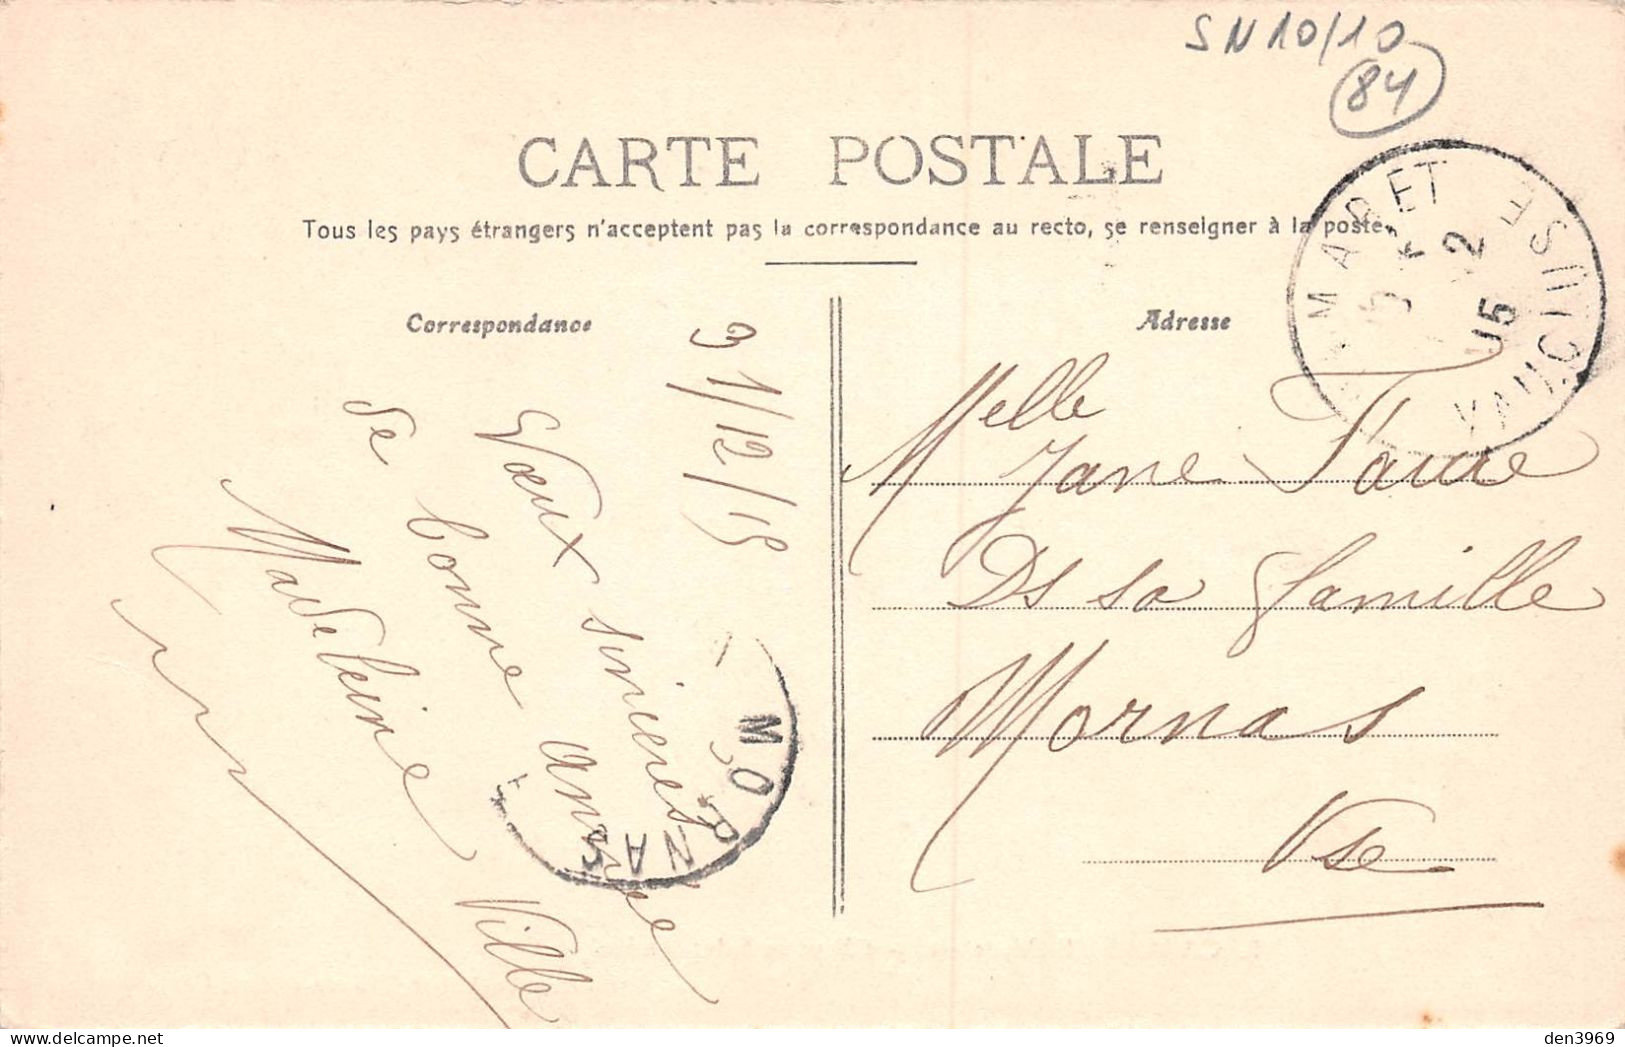 SN10/10
84
CARTE POSTALE
Tous les pays étrangers n'acceptent pas la correspondance au recto, se renseigner à la poste.
Correspondance
Adresse
31/12/15
Vœux sincères
de bonne année
Madeleine Ville
Melle
Jane Faure
Ds sa famille
Mornas
Vse
MARET
VAUCLUSE
MORNAS
den3969